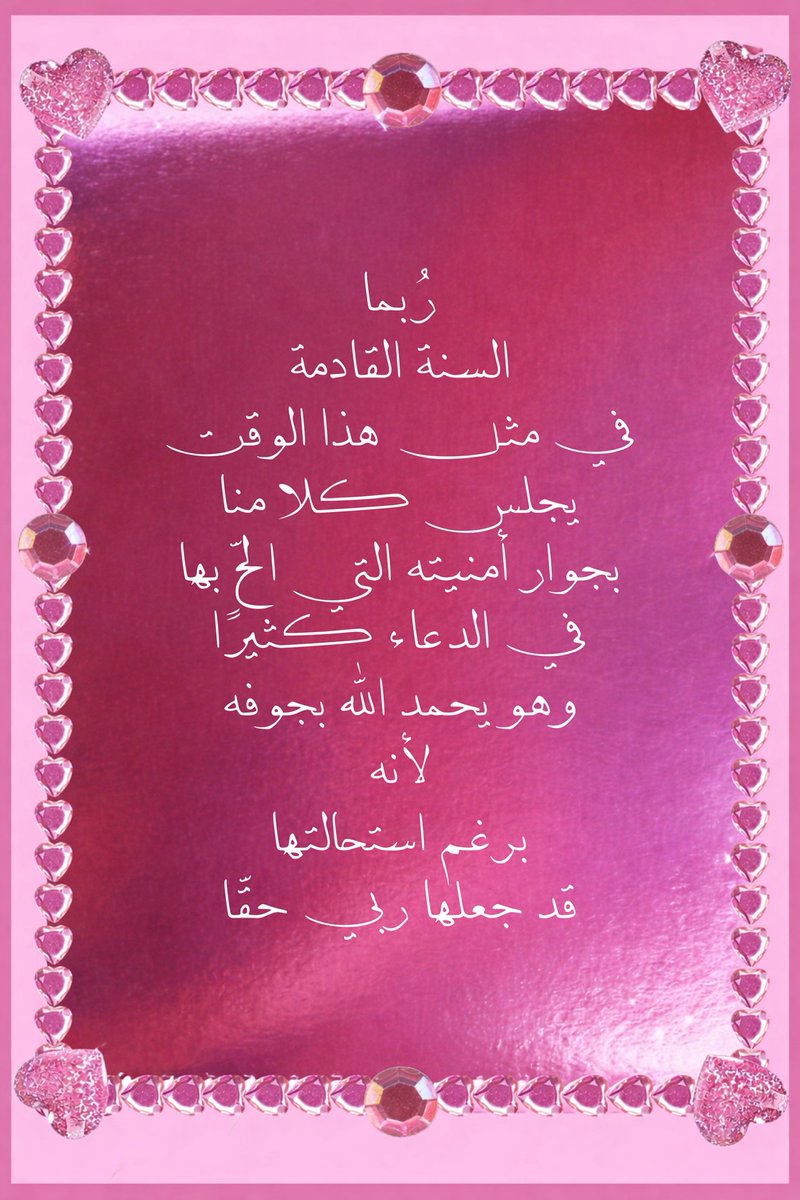 رُبما
السنة القادمة
في مثل هذا الوقت
يجلس كلا منا
بجوار أمنيته التي الحّ بها
في الدعاء كثيرًا
وهو يحمد الله بجوفه
لأنه
برغم استحالتها
قد جعلها ربي حقّا